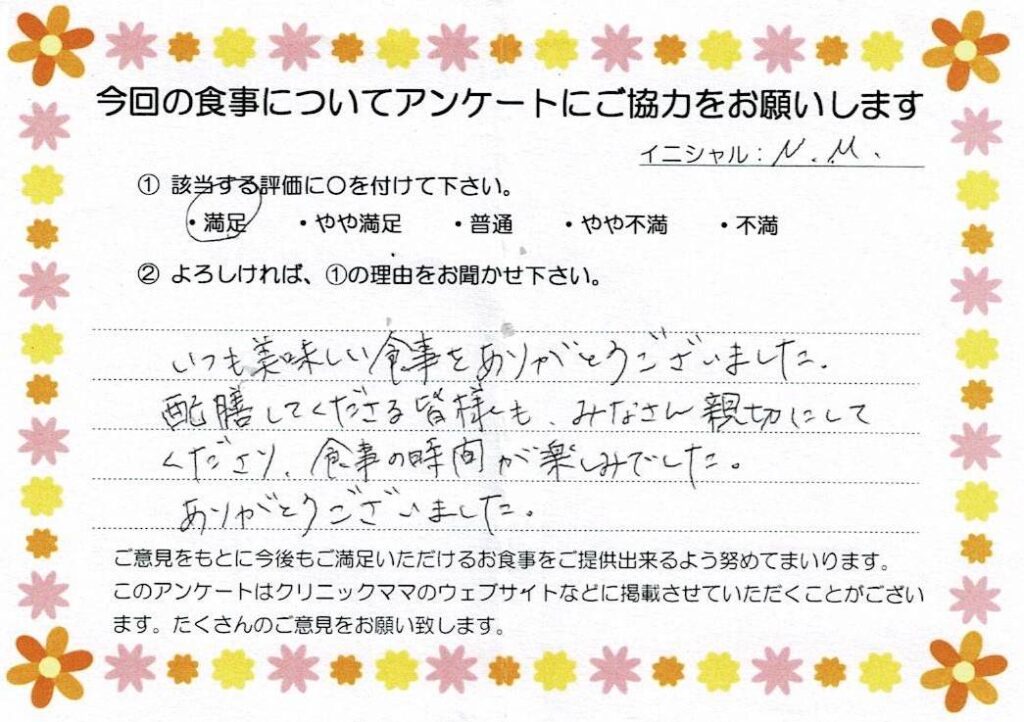 今回の食事についてアンケートにご協力をお願いします
イニシャル：N.M.
① 該当する評価に〇を付けて下さい。
・満足　・やや満足　・普通　・やや不満　・不満
② よろしければ、①の理由をお聞かせ下さい。
いつも美味しい食事をありがとうございました.
配膳してくださる皆様も、みなさん親切にして
くださり、食事の時間が楽しみでした。
ありがとうございました。
ご意見をもとに今後もご満足いただけるお食事をご提供出来るよう努めてまいります。
このアンケートはクリニックママのウェブサイトなどに掲載させていただくことがござい
ます。たくさんのご意見をお願い致します。